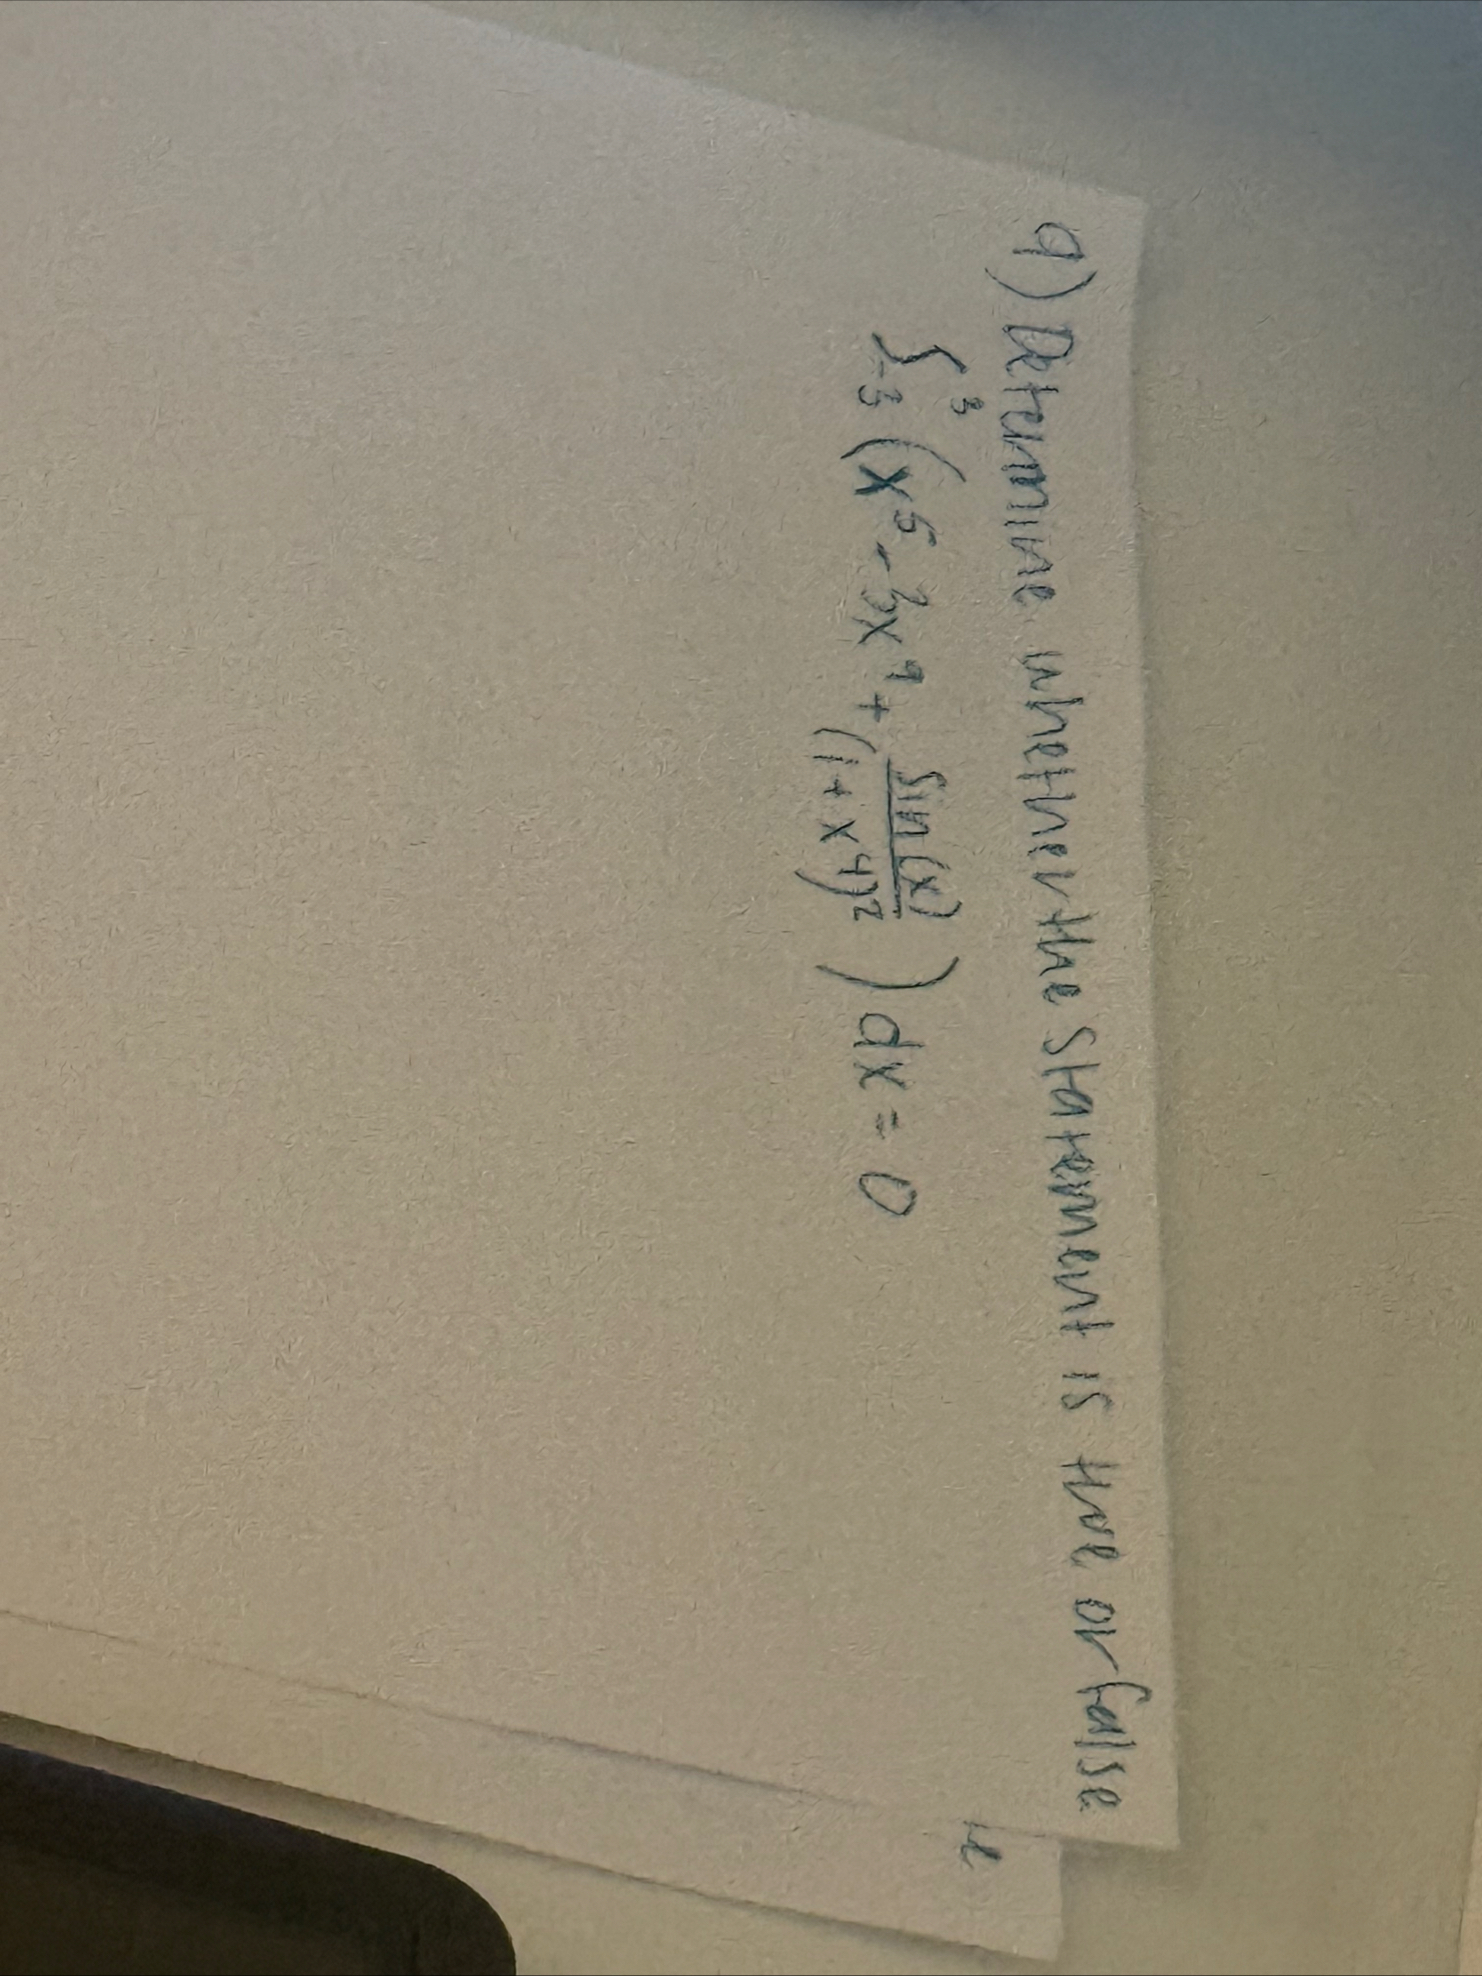 9) Determine whether the statement is true or false
∫₋₃³ (x⁵ - 3x⁹ + sin(x)/(1 + x⁴)²) dx = 0